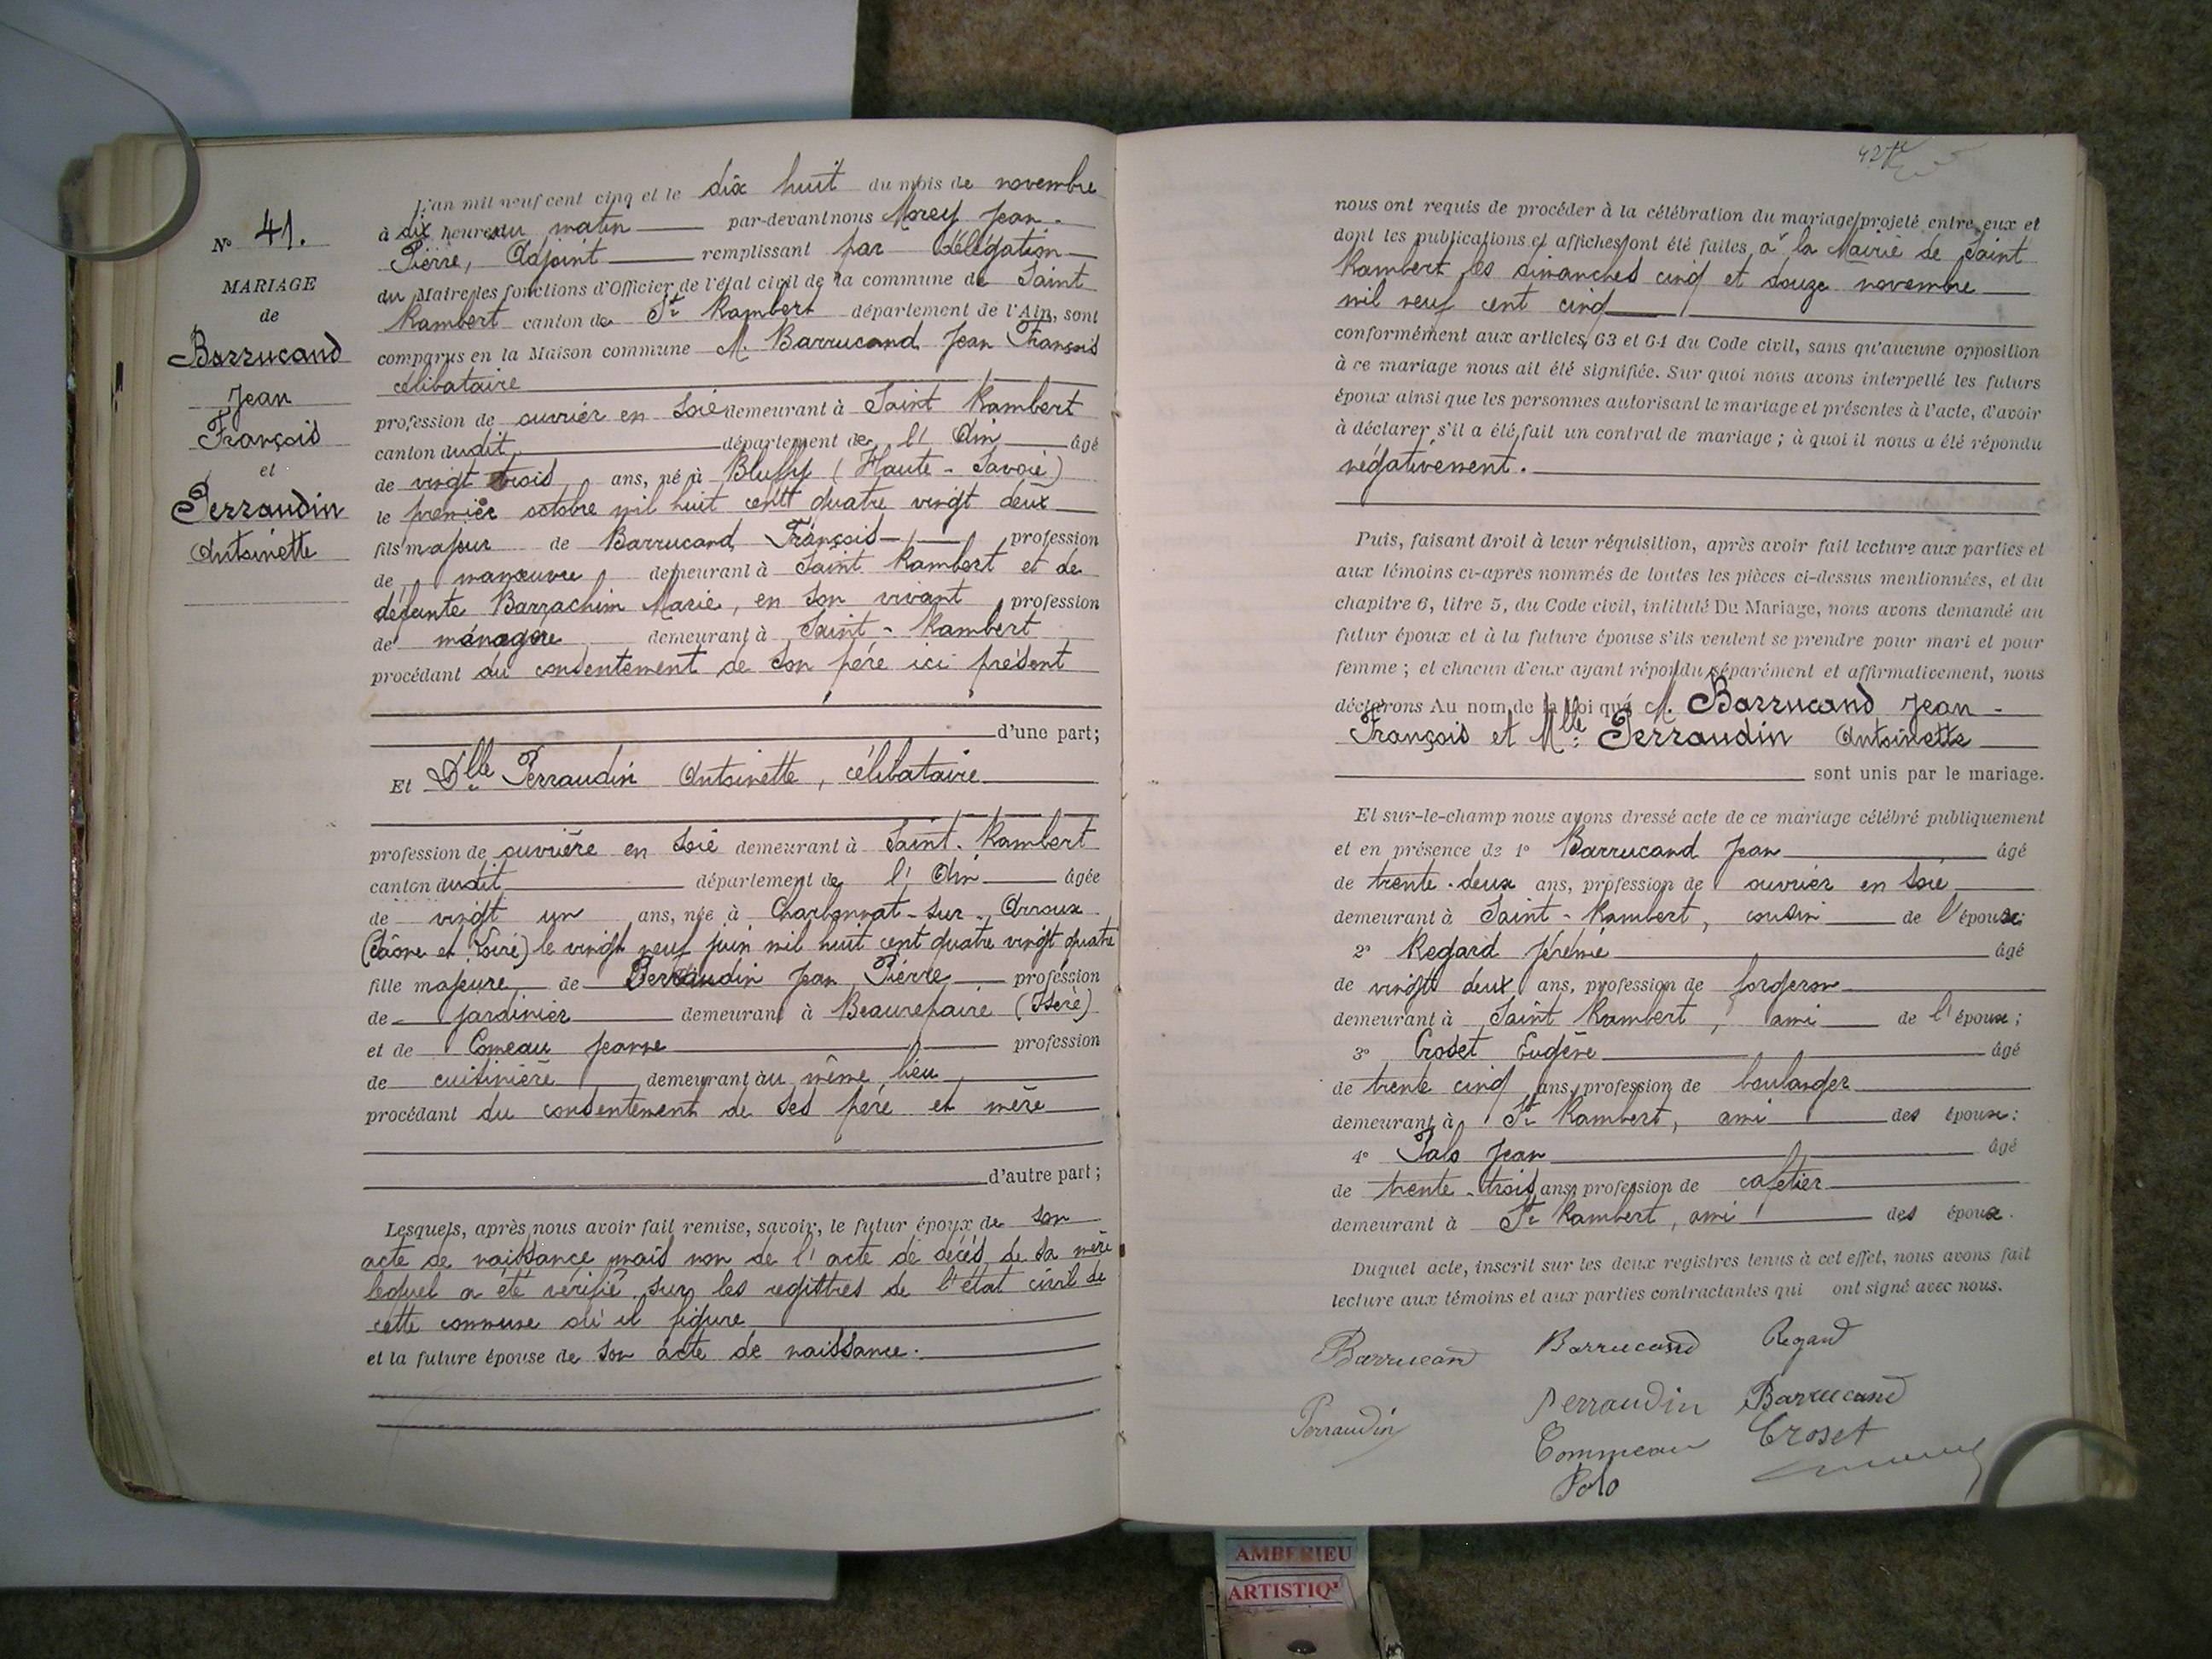 N° 41.
MARIAGE
de
Barrucand
Jean
François
et
Perraudin
Antoinette
L'an mil neuf cent cinq et le dix huit du mois de novembre
à dix heures du matin par-devant nous Morey Jean-
Pierre, Adjoint remplissant par délégation
du Maire les fonctions d'Officier de l'état civil de la commune de Saint
Rambert canton de St Rambert département de l'Ain, sont
comparus en la Maison commune M. Barrucand Jean François
célibataire
profession de ouvrier en soie demeurant à Saint Rambert
canton dudit département de l'Ain âgé
de vingt trois ans, né à Bluffy (Haute-Savoie)
le premier octobre mil huit cent quatre vingt deux
fils majeur de Barrucand François profession
de manœuvre demeurant à Saint Rambert et de
défunte Barrachim Marie, en son vivant profession
de ménagère demeurant à Saint-Rambert
procédant du consentement de son père ici présent
d'une part;
Et Dlle Perraudin Antoinette, célibataire
profession de ouvrière en soie demeurant à Saint-Rambert
canton dudit département de l'Ain âgée
de vingt un ans, née à Charbonnat-sur-Arroux
(Saône et Loire) le vingt neuf juin mil huit cent quatre vingt quatre
fille majeure de Perraudin Jean Pierre profession
de jardinier demeurant à Beaurepaire (Isère)
et de Comeau Jeanne profession
de cuisinière demeurant au même lieu
procédant du consentement de ses père et mère
d'autre part;
Lesquels, après nous avoir fait remise, savoir, le futur époux de son
acte de naissance mais non de l'acte de décès de sa mère
lequel a été vérifié sur les registres de l'état civil de
cette commune où il figure
et la future épouse de son acte de naissance.
42
nous ont requis de procéder à la célébration du mariage projeté entre eux et
dont les publications et affiches ont été faites à la Mairie de Saint
Rambert les dimanches cinq et douze novembre
mil neuf cent cinq
conformément aux articles 63 et 64 du Code civil, sans qu'aucune opposition
à ce mariage nous ait été signifiée. Sur quoi nous avons interpellé les futurs
époux ainsi que les personnes autorisant le mariage et présentes à l'acte, d'avoir
à déclarer s'il a été fait un contrat de mariage; à quoi il nous a été répondu
négativement.
Puis, faisant droit à leur réquisition, après avoir fait lecture aux parties et
aux témoins ci-après nommés de toutes les pièces ci-dessus mentionnées, et du
chapitre 6, titre 5, du Code civil, intitulé Du Mariage, nous avons demandé au
futur époux et à la future épouse s'ils veulent se prendre pour mari et pour
femme; et chacun d'eux ayant répondu séparément et affirmativement, nous
déclarons Au nom de la loi que M. Barrucand Jean-
François et Mlle Perraudin Antoinette
sont unis par le mariage.
Et sur-le-champ nous avons dressé acte de ce mariage célébré publiquement
et en présence de 1° Barrucand Jean âgé
de trente-deux ans, profession de ouvrier en soie
demeurant à Saint-Rambert, cousin de l'époux;
2° Regard Jérémie âgé
de vingt deux ans, profession de forgeron
demeurant à Saint Rambert, ami de l'époux;
3° Croset Eugène âgé
de trente cinq ans, profession de boulanger
demeurant à St Rambert, ami des époux;
4° Palo Jean âgé
de trente-trois ans, profession de cafetier
demeurant à St Rambert, ami des époux.
Duquel acte, inscrit sur les deux registres tenus à cet effet, nous avons fait
lecture aux témoins et aux parties contractantes qui ont signé avec nous.
Barrucand Barrucand Regard
Perraudin Perraudin Barrucand
Commeau Croset
Polo
AMBERIEU
ARTISTIQ